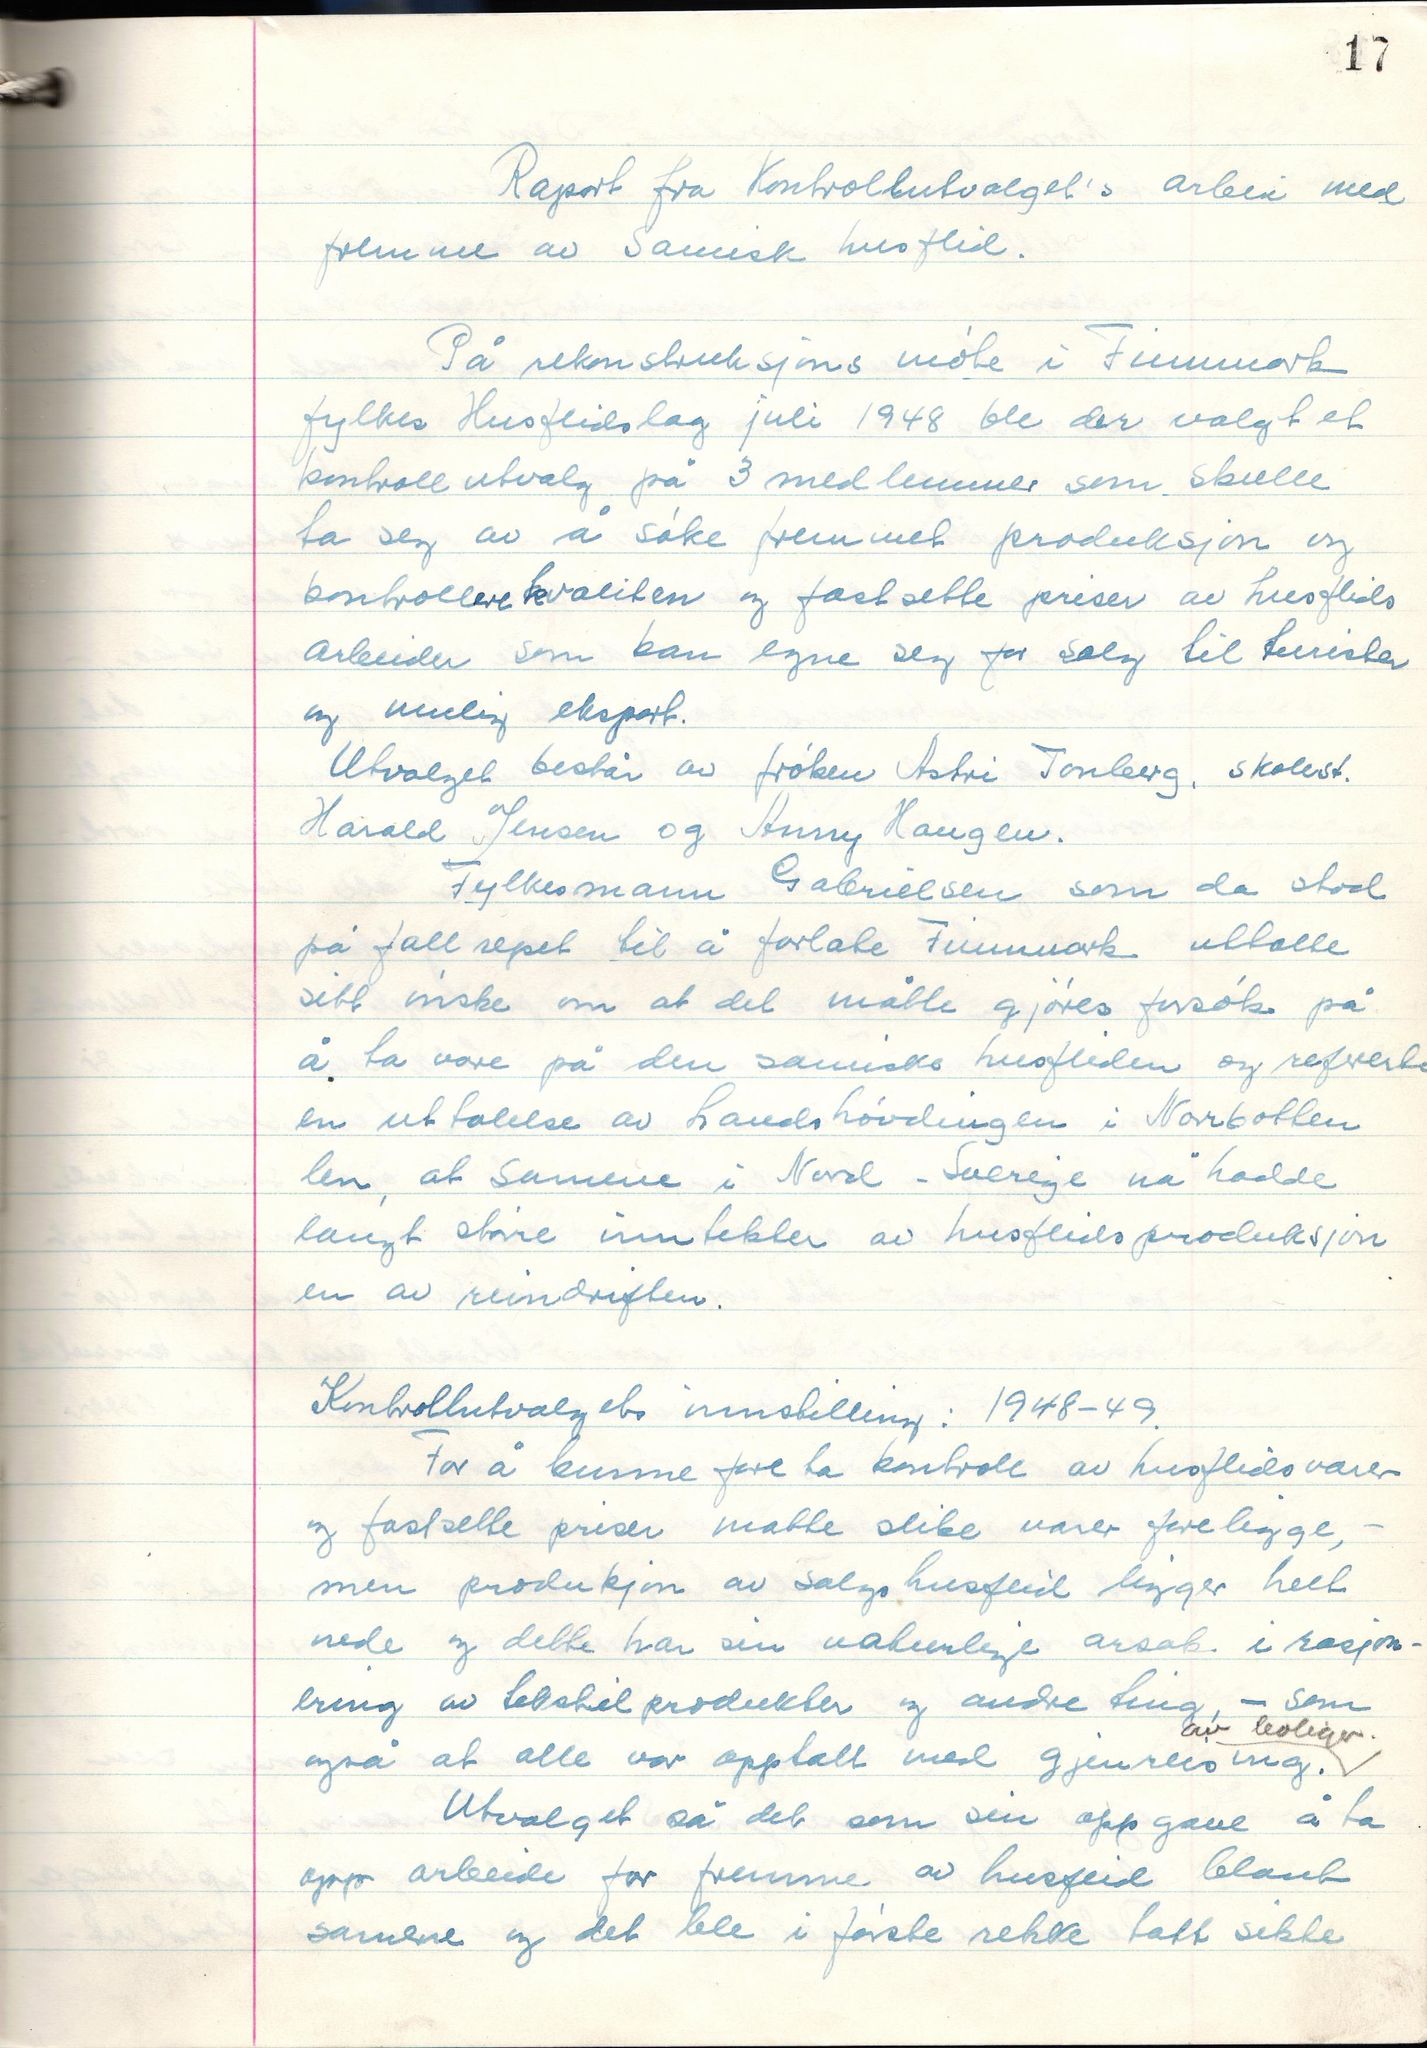 17
Raport fra Kontrollutvalget's arbeid med
fremme av Samisk husflid.
På rekonstruksjons møte i Finnmark
fylkes Husflidslag juli 1948 ble der valgt et
kontroll utvalg på 3 medlemmer som skulle
ta seg av å søke fremmet produksjon og
kontrollere kvaliten og fastsette priser av husflids
arbeider som kan egne seg for salg til turister
og mulig eksport.
Utvalget består av frøken Astri Tonberg, skolest.
Harald Jensen og Anny Haugen.
Fylkesmann Gabrielsen som da stod
på fallrepet til å forlate Finnmark uttalte
sitt ønske om at det måtte gjøres forsøk på
å ta vare på den samiske husfliden og refererte
en uttalelse av Landshøvdingen i Norrbotten
len, at samene i Nord-Sverige nå hadde
langt større inntekter av husflidsproduksjon
en av reindriften.
Kontrollutvalgets innstilling: 1948-49.
For å kunne fore ta kontroll av husflidsvarer
og fastsette priser matte slike varer foreligge, –
men produkjon av salgshusflid ligger helt
nede og dette har sin naturlige arsak i rasjon-
ering av tekstilprodukter og andre ting, – som
også at alle var opptatt med gjenreising. av boliger.
Utvalget så det som sin oppgave å ta
opp arbeide for fremme av husflid blant
samene og det ble i første rekke tatt sikte